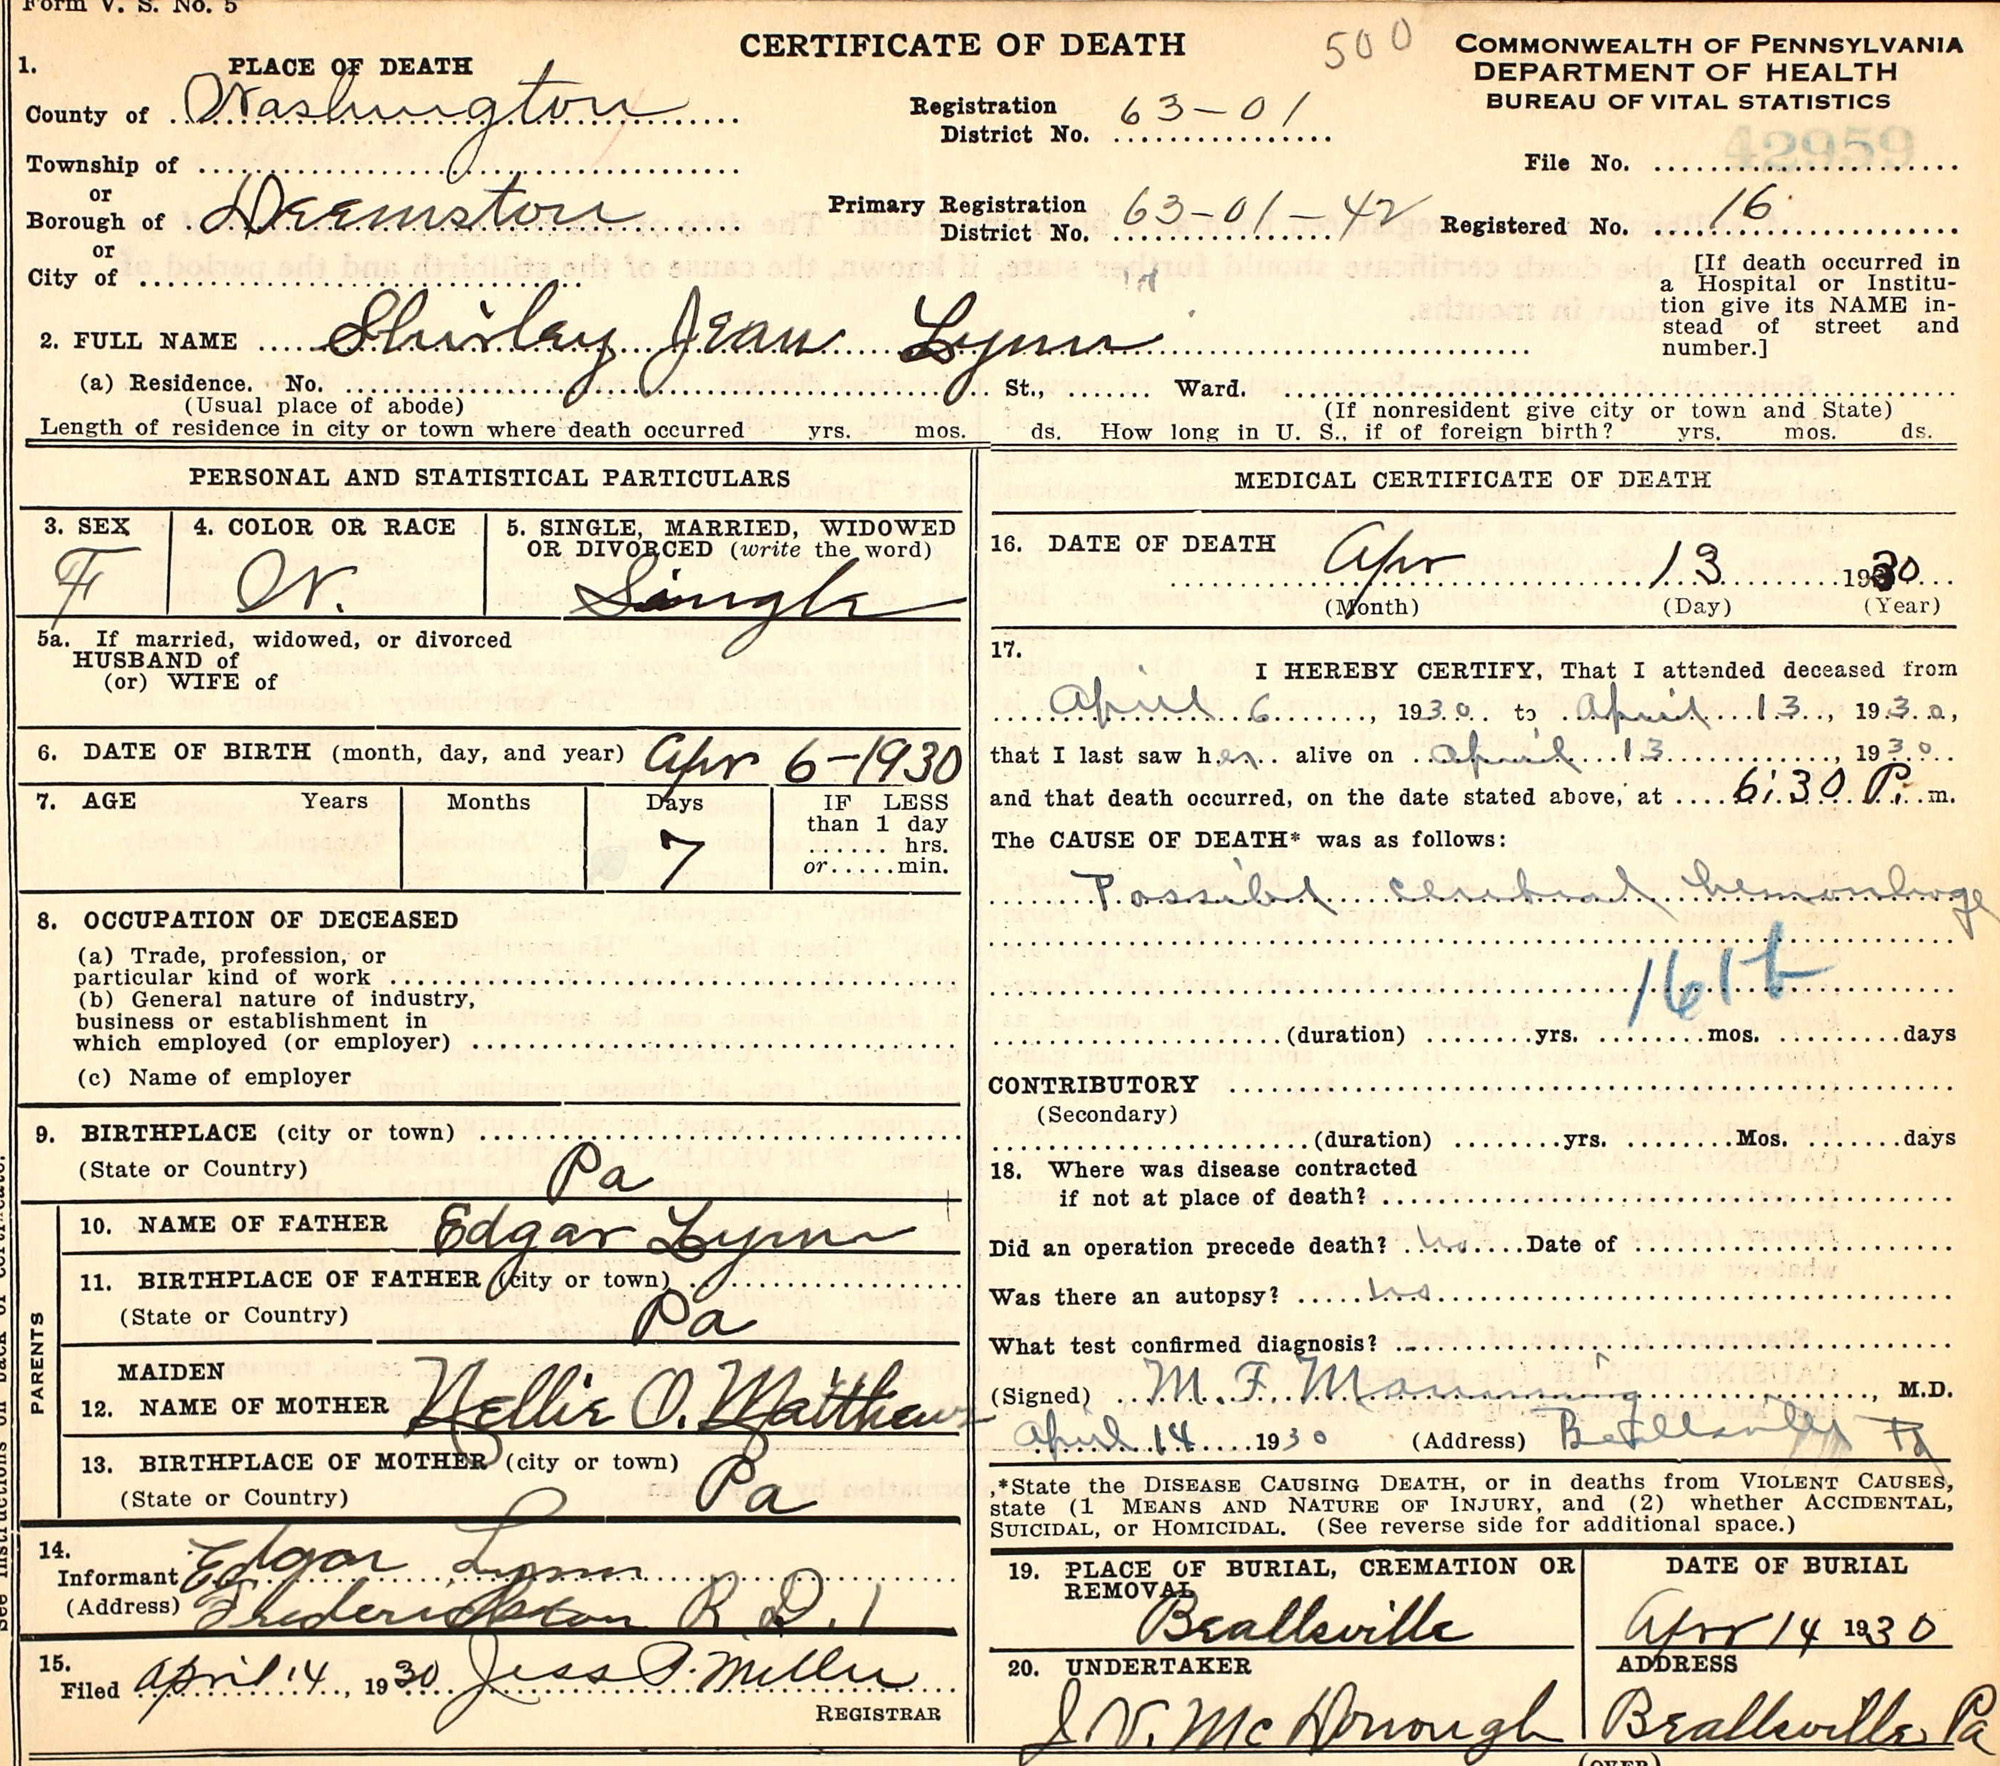 Form V. S. No. 5
CERTIFICATE OF DEATH
500
COMMONWEALTH OF PENNSYLVANIA
DEPARTMENT OF HEALTH
BUREAU OF VITAL STATISTICS
1. PLACE OF DEATH
County of Washington
Registration District No. 63-01
File No. 42959
Township of
or
Borough of Deemston
Primary Registration District No. 63-01-42
Registered No. 16
or
City of
[If death occurred in a Hospital or Institution give its NAME instead of street and number.]
2. FULL NAME Shirley Jean Lynn
(a) Residence. No. St., Ward.
(Usual place of abode) (If nonresident give city or town and State)
Length of residence in city or town where death occurred yrs. mos. ds. How long in U. S., if of foreign birth? yrs. mos. ds.
PERSONAL AND STATISTICAL PARTICULARS
3. SEX
F
4. COLOR OR RACE
W.
5. SINGLE, MARRIED, WIDOWED
OR DIVORCED (write the word)
Single
5a. If married, widowed, or divorced
HUSBAND of
(or) WIFE of
6. DATE OF BIRTH (month, day, and year) Apr 6-1930
7. AGE Years Months Days
7
IF LESS
than 1 day
hrs.
or min.
8. OCCUPATION OF DECEASED
(a) Trade, profession, or
particular kind of work
(b) General nature of industry,
business or establishment in
which employed (or employer)
(c) Name of employer
9. BIRTHPLACE (city or town)
(State or Country) Pa
PARENTS
10. NAME OF FATHER Edgar Lynn
11. BIRTHPLACE OF FATHER (city or town)
(State or Country) Pa
MAIDEN
12. NAME OF MOTHER Nellie O. Matthews
13. BIRTHPLACE OF MOTHER (city or town)
(State or Country) Pa
14.
Informant Edgar Lynn
(Address) Fredericktown R. D. 1
15.
Filed April 14, 1930 Jess P. Miller
REGISTRAR
See instructions on back of certificate.
MEDICAL CERTIFICATE OF DEATH
16. DATE OF DEATH Apr 13 1930
(Month) (Day) (Year)
17.
I HEREBY CERTIFY, That I attended deceased from
April 6, 1930 to April 13, 1930,
that I last saw her alive on April 13, 1930
and that death occurred, on the date stated above, at 6:30 P. m.
The CAUSE OF DEATH* was as follows:
Possible cerebral hemorrhage
161b
(duration) yrs. mos. days
CONTRIBUTORY
(Secondary)
(duration) yrs. Mos. days
18. Where was disease contracted
if not at place of death?
Did an operation precede death? No Date of
Was there an autopsy? No
What test confirmed diagnosis?
(Signed) M. F. Manning, M.D.
April 14 1930 (Address) Beallsville Pa
*State the DISEASE CAUSING DEATH, or in deaths from VIOLENT CAUSES,
state (1 MEANS AND NATURE OF INJURY, and (2) whether ACCIDENTAL,
SUICIDAL, or HOMICIDAL. (See reverse side for additional space.)
19. PLACE OF BURIAL, CREMATION OR
REMOVAL
Beallsville
DATE OF BURIAL
Apr 14 1930
20. UNDERTAKER
J. V. McDonough
ADDRESS
Beallsville Pa
(OVER)